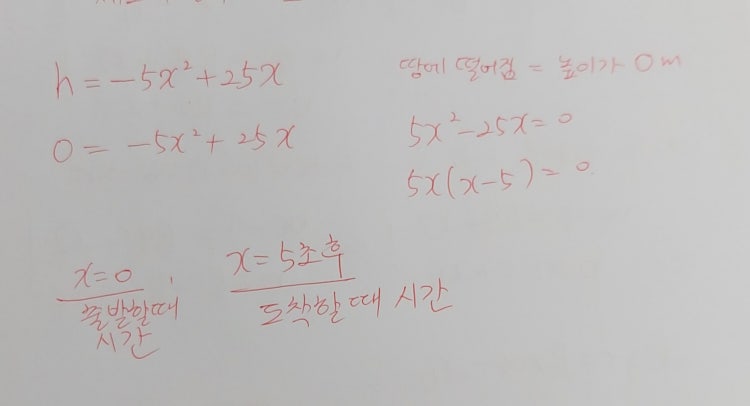 h = -5x² + 25x
땅에 떨어짐 = 높이가 0m
0 = -5x² + 25x
5x² - 25x = 0
5x(x-5) = 0.
x=0,
x = 5초후
출발할때
시간
도착할 때 시간